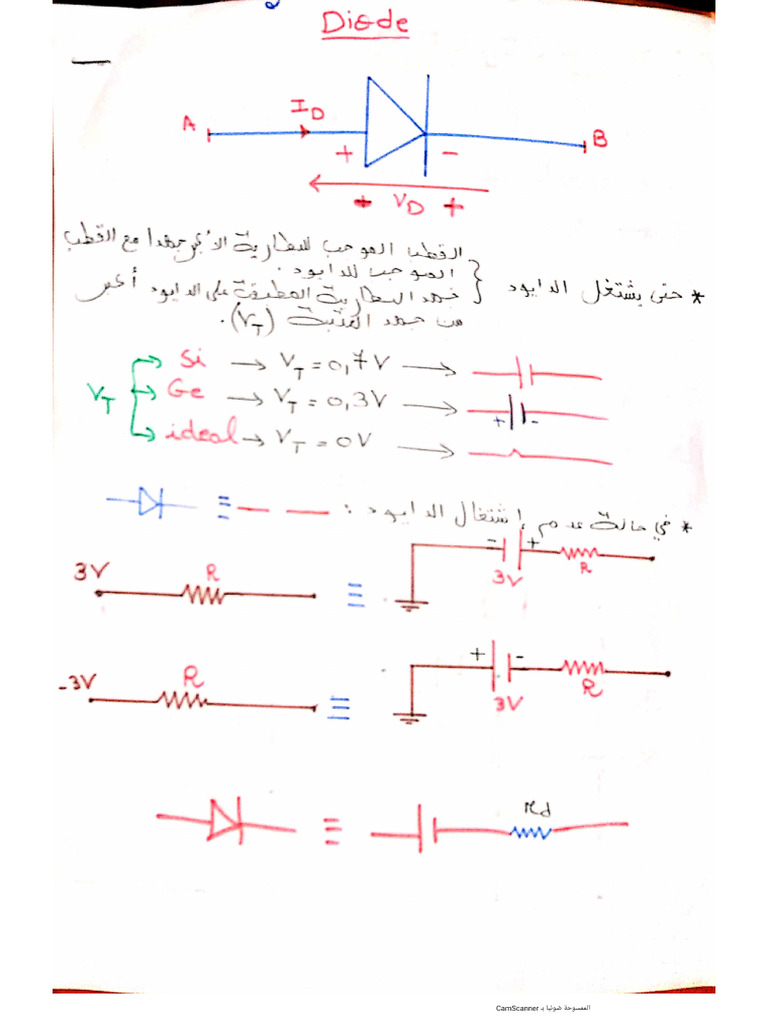 Diode
A
I_D
B
+ -
+ V_D +
القطب الموجب للبطارية الأكبر جهدا مع القطب
الموجب للدايود.
* حتى يشتغل الدايود
جهد البطارية المطبقة على الدايود أكبر
من جهد العتبة (V_T).
V_T
Si → V_T = 0,7V →
Ge → V_T = 0,3V →
+ -
ideal → V_T = 0V →
* في حالة عدم إشتغال الدايود :
≡
3V R ≡ - + 3V R
-3V R ≡ + - 3V R
≡ rd
الممسوحة ضوئيا بـ CamScanner